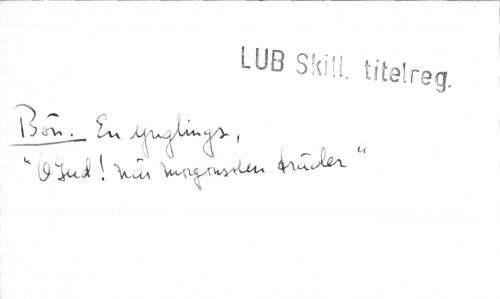 LUB Skill. titelreg.
Bön. En ynglings,
"O Gud! när morgonsolen träder"